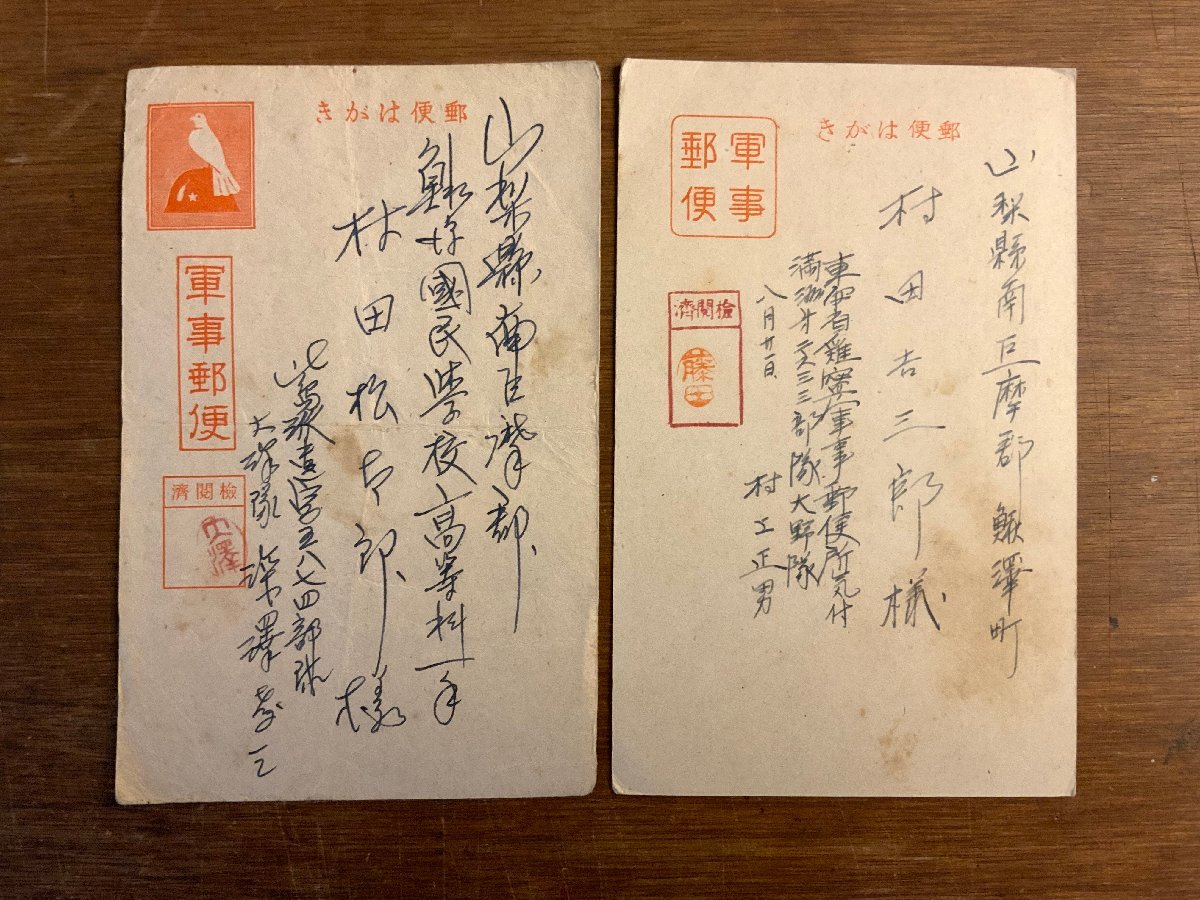 きがは便郵
山梨縣南巨摩郡
鰍澤國民學校高等科一年
村田松太郎様
軍事郵便
濟閲檢
五八七四部隊
大澤隊 深澤孝三
きがは便郵
軍事郵便
山梨縣南巨摩郡鰍澤町
村田吉三郎様
東安省雞寧軍事郵便所気付
三三部隊大野隊
八月廿一日
村上正男
濟閲檢
藤田